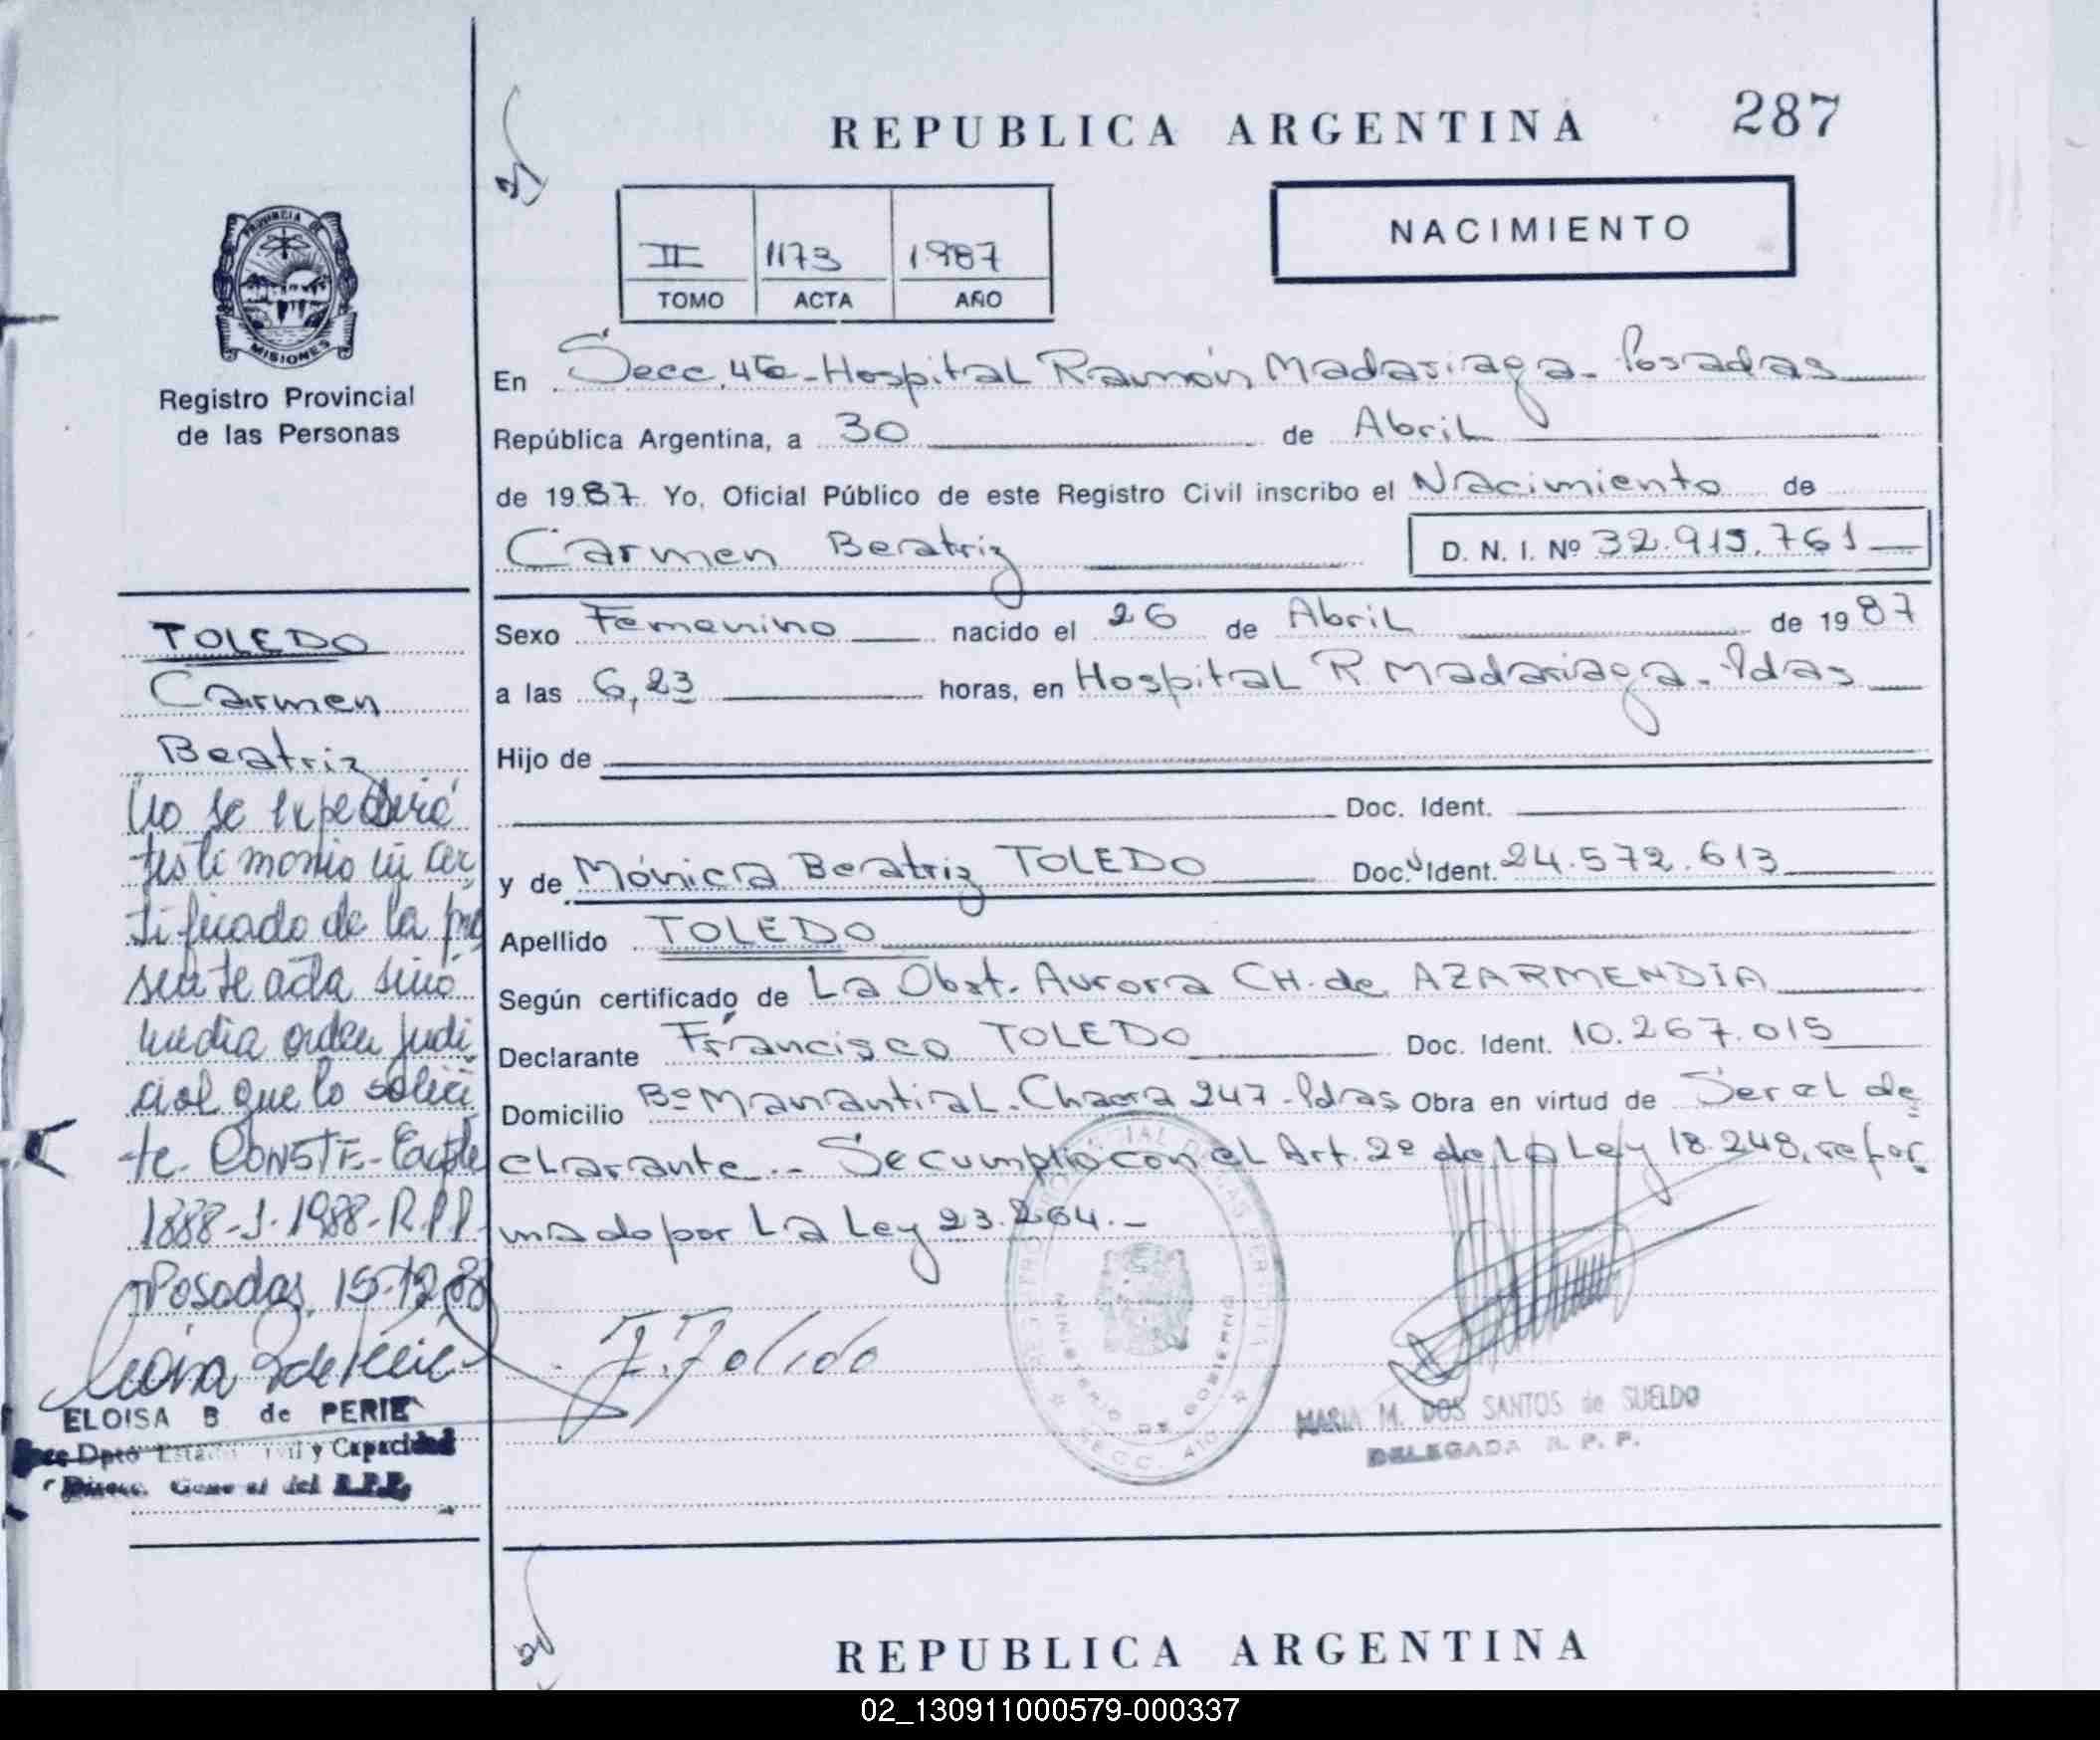 REPUBLICA ARGENTINA
287
II 1173 1987
TOMO ACTA AÑO
NACIMIENTO
PROVINCIA DE
MISIONES
Registro Provincial
de las Personas
En Secc. 4ta - Hospital Ramón Madariaga - Posadas
República Argentina, a 30 de Abril
de 1987. Yo, Oficial Público de este Registro Civil inscribo el Nacimiento de
Carmen Beatriz
D. N. I. Nº 32.915.761
Sexo Femenino nacido el 26 de Abril de 1987
a las 6,23 horas, en Hospital R Madariaga - Pdas
Hijo de
Doc. Ident.
y de Mónica Beatriz TOLEDO Doc. Ident. 24.572.613
Apellido TOLEDO
Según certificado de La Obst. Aurora CH. de AZARMENDIA
Declarante Francisco TOLEDO Doc. Ident. 10.267.015
Domicilio Bº Manantial - Chacra 247 - Pdas Obra en virtud de Ser el de
clarante.- Se cumplió con el Art. 2º de La Ley 18.248, refor
mado por La Ley 23.264.-
TOLEDO
Carmen
Beatriz
No se expedirá
testimonio ni cer
tificado de la pre
sente acta sino
media orden judi
cial que lo solici
te. CONSTE - Expte
1888-J-1988-R.P.P.
Posadas, 15-12-88
ELOISA B de PERIE
Dpto Estado Civil y Capacidad
Direcc. General del R.P.P.
F. Toledo
MINISTERIO DE GOBIERNO
SECC. 4ta
MARIA M. DOS SANTOS de SUELDO
DELEGADA R. P. P.
REPUBLICA ARGENTINA
02_130911000579-000337